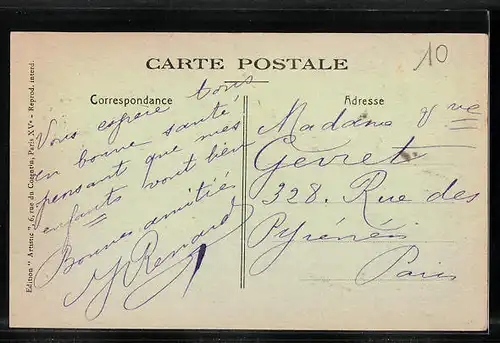 CARTE POSTALE
10
Correspondance
Adresse
Vous espère tous
en bonne santé
pensant que mes
enfants vont bien
Bonnes amitiés
Renard
Madame
Gevret
328. Rue des
Pyrénées
Paris
Edition " Artistic ", 6, rue du Congrès, Paris XVe - Reprod. interd.